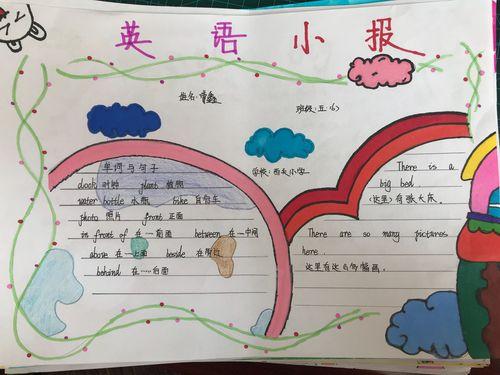 英语小报
姓名:鑫
班级:五(6)
学校:西夭小学
单词与句子
clock 时钟 plant 植物
water bottle 水瓶 bike 自行车
photo 照片 front 正面
in front of 在…前面 between 在…中间
above 在…上面 beside 在旁边
behind 在……后面
There is a
big bed.
(这里)有张大床。
There are so many pictures
here.
这里有这么多幅画。